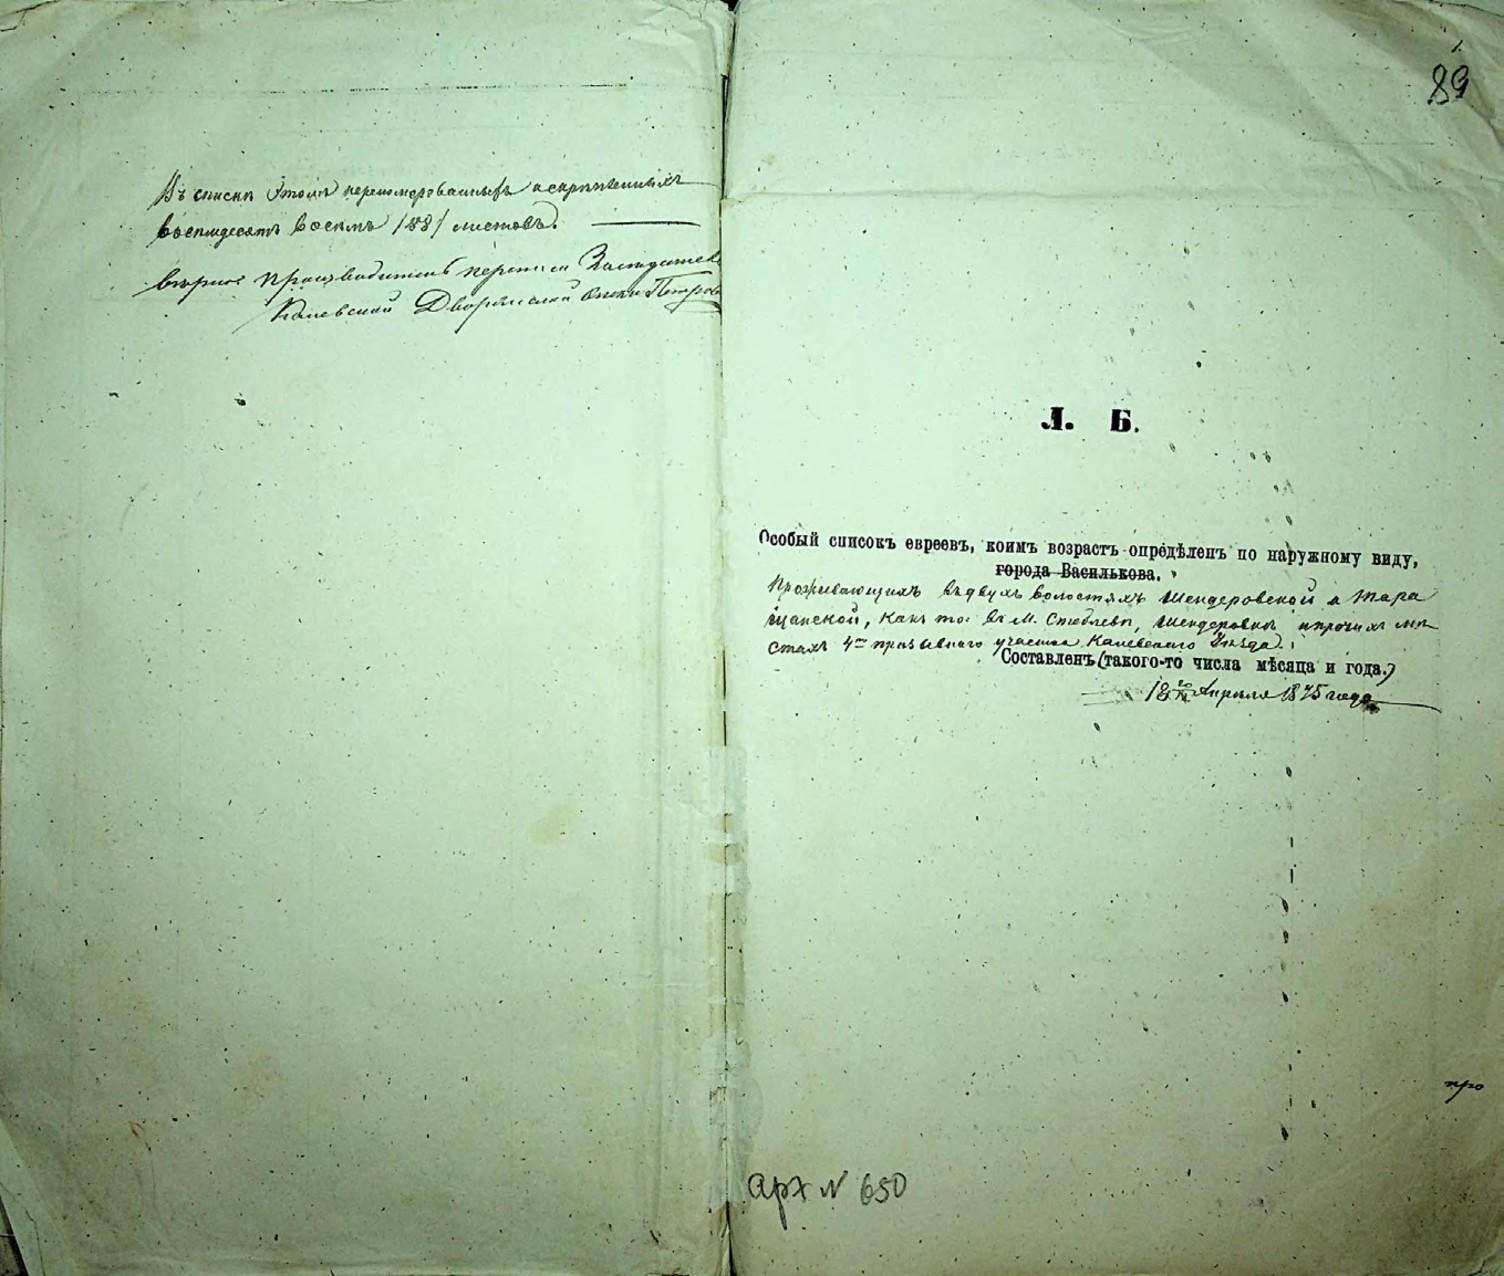 Въ списки этомъ перенумерованныхъ и скрепленныхъ
восемдесятъ восемь /88/ листовъ.
Вѣрно: Производитель переписи Заседатель
Каневской Дворянской Опеки Петров
1.
89
Л. Б.
Особый списокъ евреевъ, коимъ возрастъ опредѣленъ по наружному виду,
города Василькова.
Проживающихъ въ двухъ волостяхъ Шендеровской и Тара
щанской, какъ то: въ м. Стеблевѣ, Шендеровкѣ и прочихъ мѣ
стахъ 4го призывного участка Каневского Уѣзда.
Составленъ (такого-то числа мѣсяца и года.)
18го Апреля 1875 года
про
арх N 650